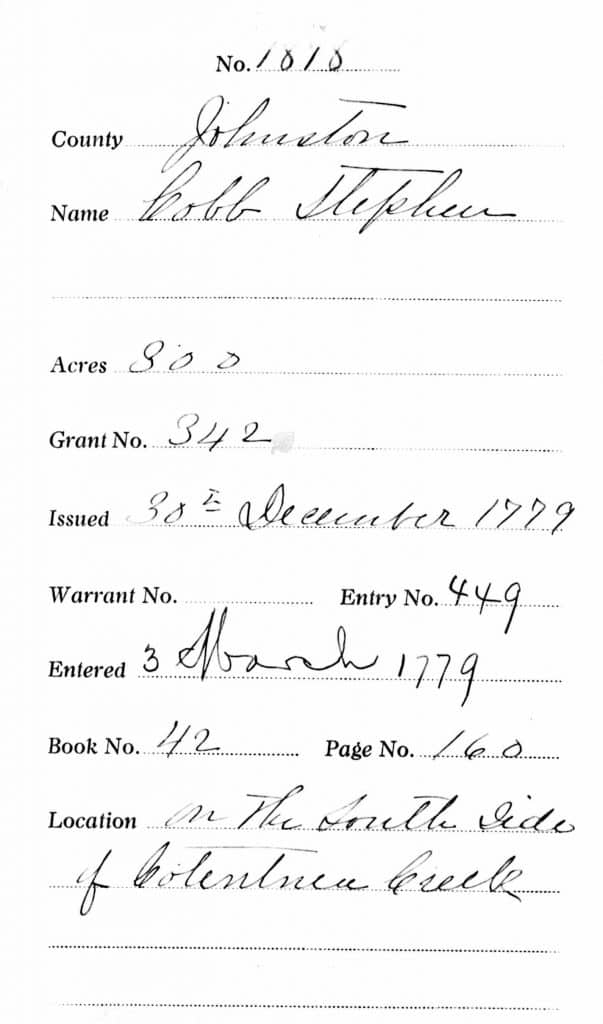 No. 1818
County Johnston
Name Cobb Stephen
Acres 300
Grant No. 342
Issued 30th December 1779
Warrant No. Entry No. 449
Entered 3 March 1779
Book No. 42 Page No. 160
Location on the South Side
of Cotentnea Creek